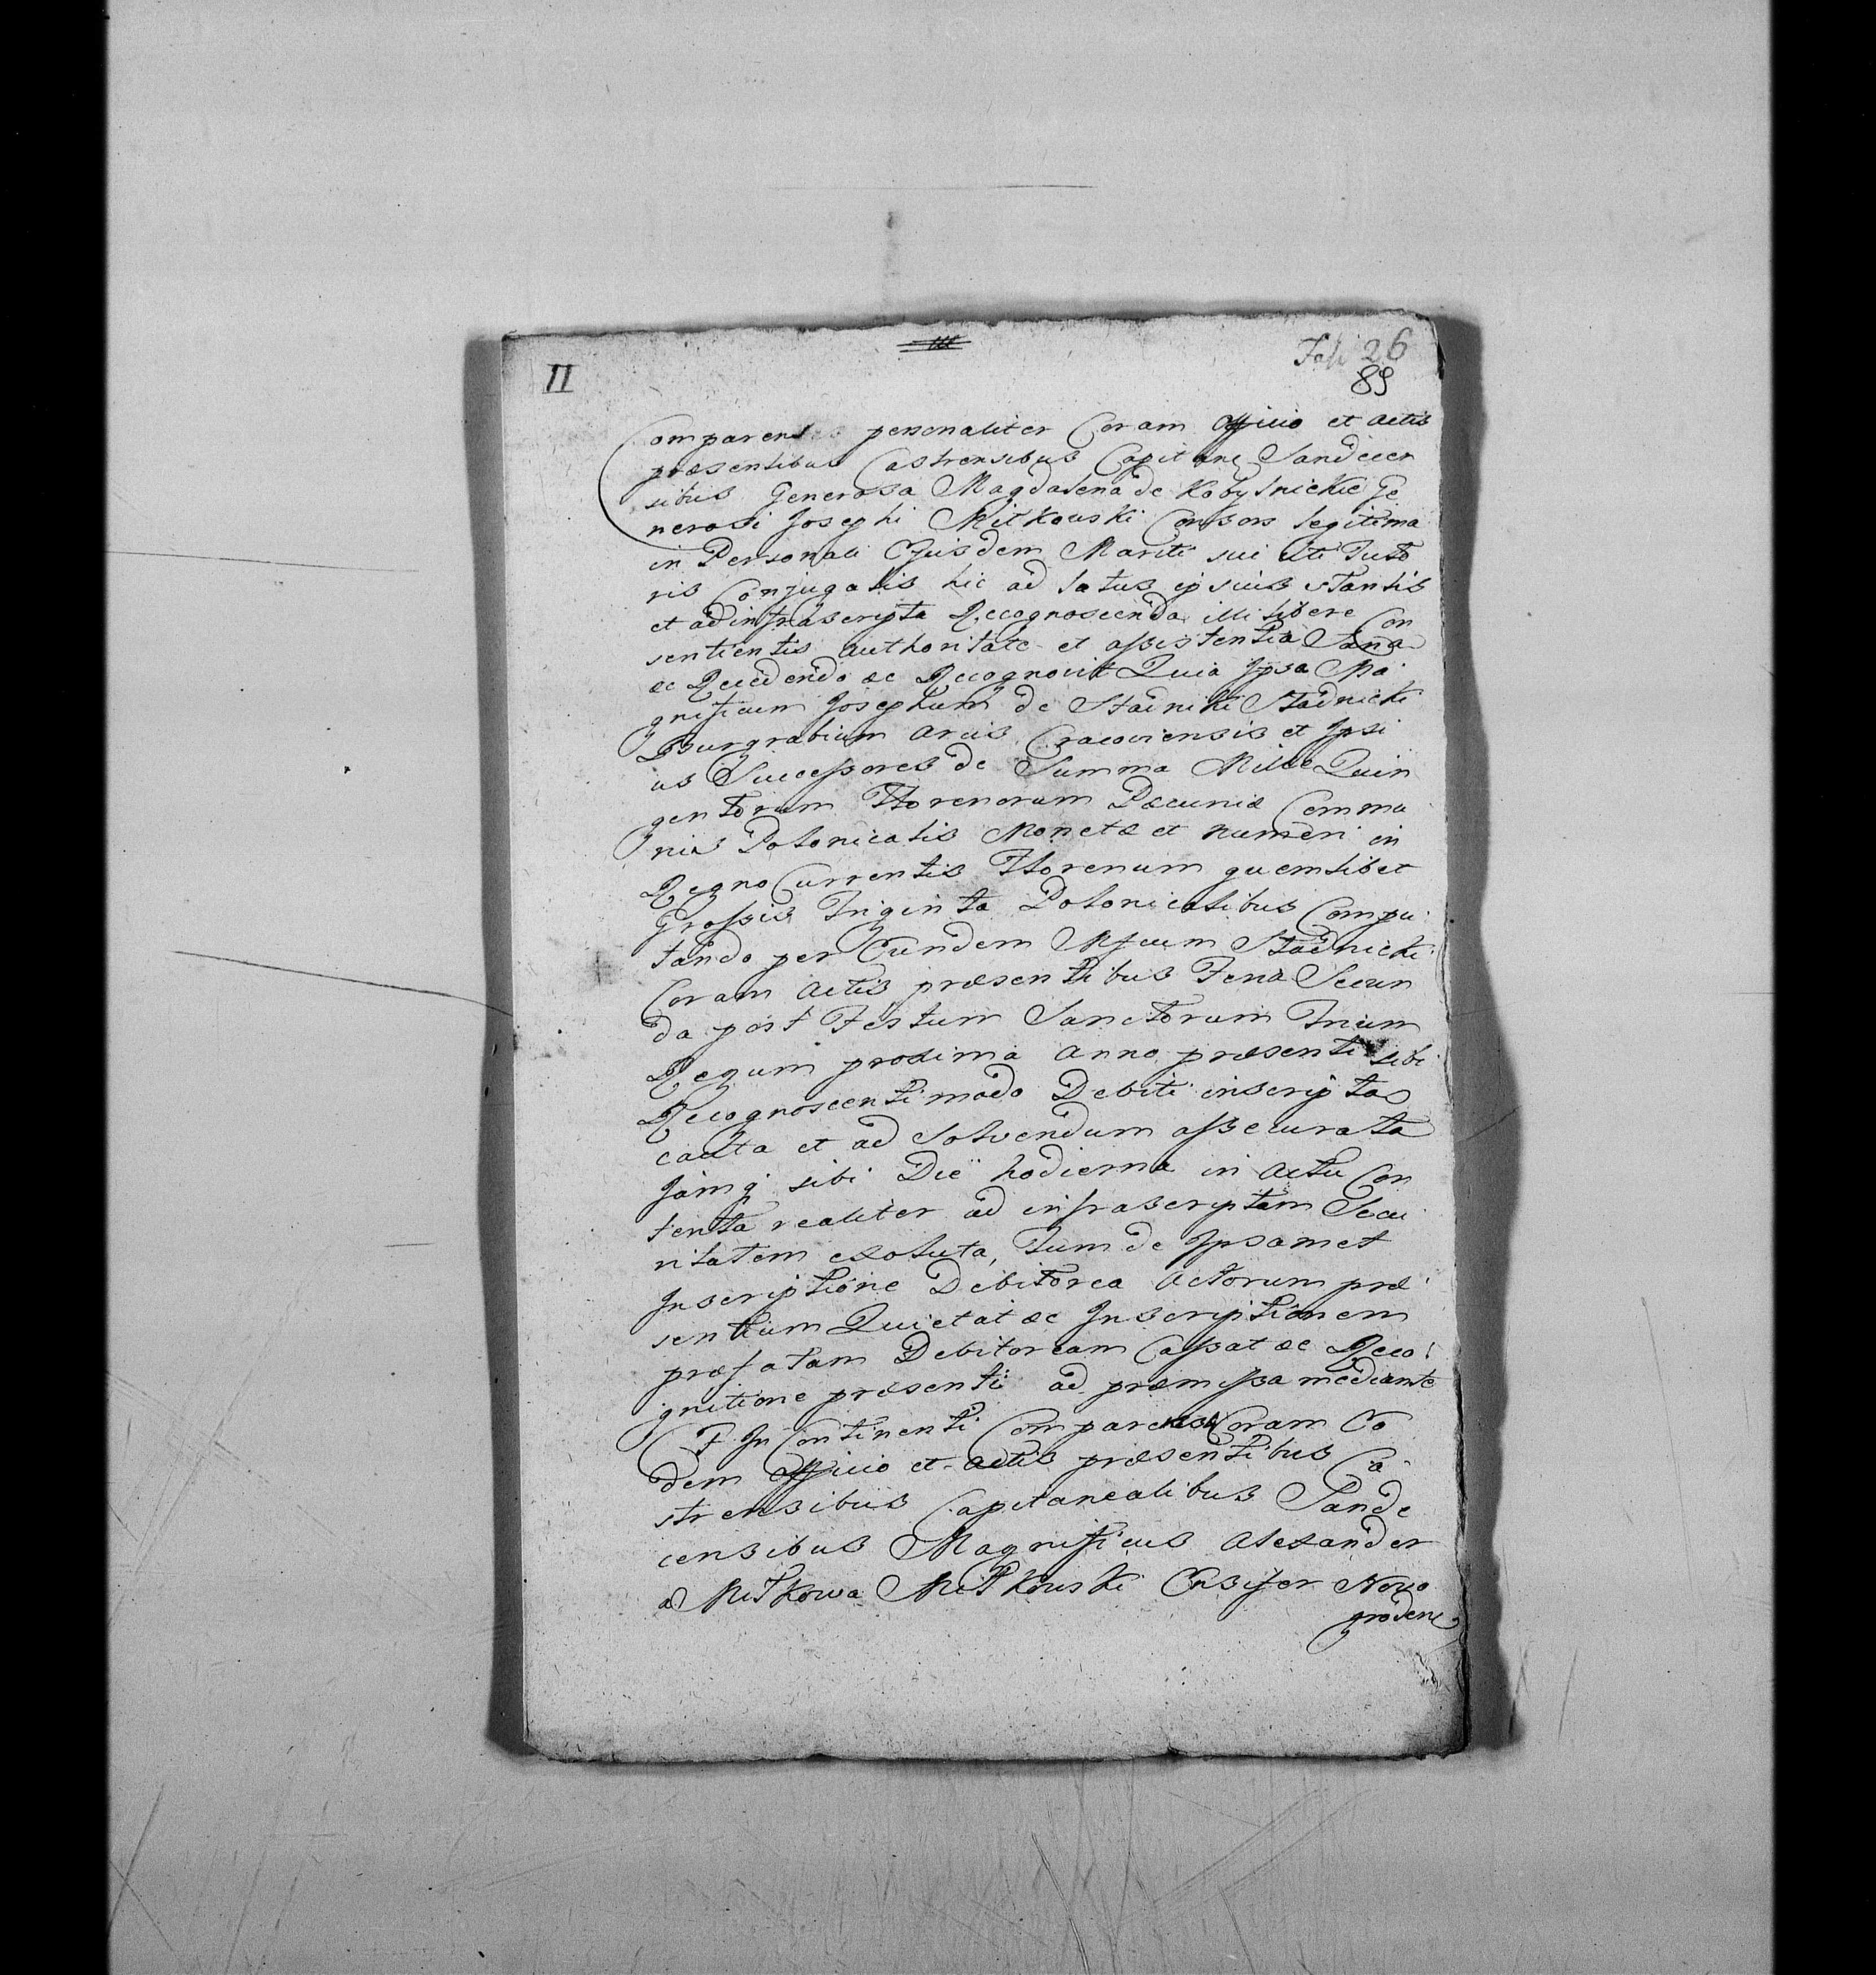 II
26
89
Comparens personaliter Coram Officio et Actis
præsentibus Castrensibus Capitane Sandecen
sibus Generosa Magdalena de Kobylnickie Ge
nerosi Josephi Mitkowski Consors legitima
in Personali Ejusdem Mariti sui uti Tuto
ris Conjugalis hic ad latus ipsius stantis
et ad infrascripta Recognoscenda illi libere Con
sentientis authoritate et assistentia Sana
ac Recedendo ac Recognovit Quia Ipsa Ma
gnificum Josephum de Stadniki Stadnicki
Burgrabium Arcis Cracoviensis et Ipsi
us Successores de Summa Mille Quin
gentorum Florenorum Pecuniæ Commu
nis Polonicalis Monetæ et numeri in
Regno Currentis Florenum quemlibet
Grossis Triginta Polonicalibus Compu
tando per Eundem Mfcum Stadnicki
Coram Actis præsentibus Feria Secun
da post Festum Sanctorum Trium
Regum proxima Anno præsenti sibi
Recognoscenti modo Debiti inscripta
cauta et ad Solvendum assecurata
Jamq sibi Die hodierna in Actu Con
tenta realiter ad infrascriptam Secu
ritatem exoluta, tum de Ipsamet
Inscriptione Debitorea Actorum præ
sentium Quietat ac Inscriptionem
præfatam Debitoream Cassat ac Reco
gnitione præsenti ad præmissa mediante
F In Continenti Comparens Coram Eo
dem Officio et Actis præsentibus Ca
strensibus Capitanealibus Sande
censibus Magnificus Alexander
a Mitkowa Mitkowski Ensifer Novo
grodene